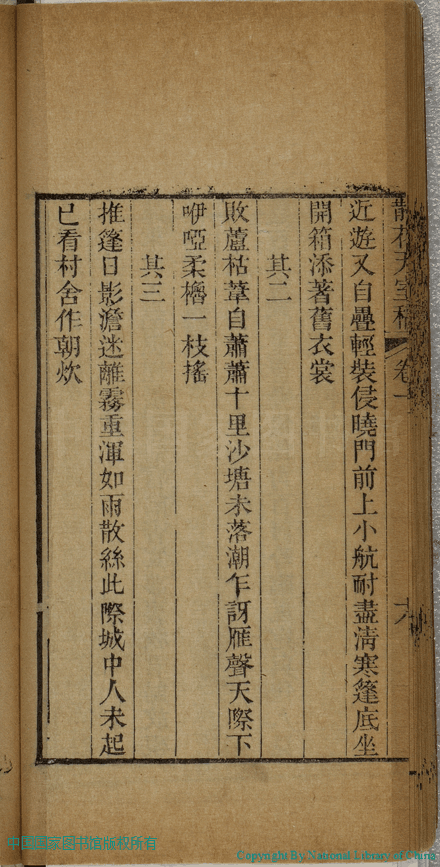 散花天室稿 卷一 六
近遊又自疊輕裝侵曉門前上小航耐盡淸寒篷底坐
開箱添著舊衣裳
其二
敗蘆枯葦自蕭蕭十里沙塘未落潮乍訝雁聲天際下
咿啞柔櫓一枝搖
其三
推篷日影澹迷離霧重渾如雨散絲此際城中人未起
已看村舍作朝炊
中国国家图书馆版权所有
Copyright By National Library of China